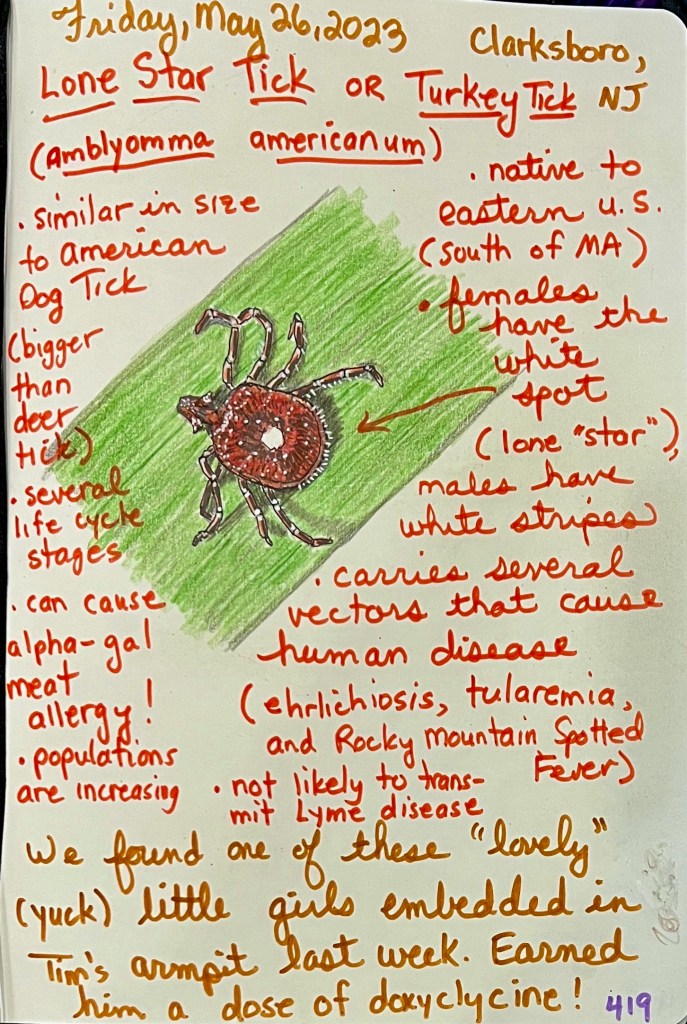 Friday, May 26, 2023 Clarksboro, NJ
Lone Star Tick OR Turkey Tick
(Amblyomma americanum)
• similar in size
to American
Dog Tick
(bigger
than
deer
tick)
• several
life cycle
stages
• can cause
alpha-gal
meat
allergy!
• populations
are increasing
• native to
eastern U.S.
(south of MA)
• females
have the
white
spot
(lone "star"),
males have
white stripes
• carries several
vectors that cause
human disease
(ehrlichiosis, tularemia,
and Rocky Mountain Spotted
Fever)
• not likely to trans-
mit Lyme disease
We found one of these "lovely"
(yuck) little girls embedded in
Tim's armpit last week. Earned
him a dose of doxycycline!
419